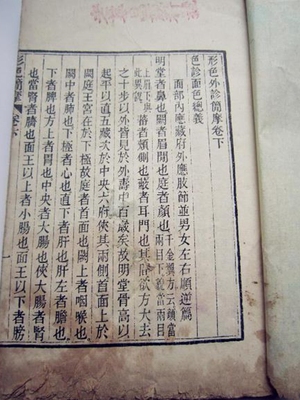 形色外診簡摩卷下
色診面色總義
面部內應藏府外應肢節並男女左右順逆篇
明堂者鼻也闕者眉間也庭者顏也
蕃者頰側也蔽者耳門也其間欲方大去
之十步以外皆見於外壽中百歲矣故明堂骨高以
起平以直五藏次於中央六府俠其兩側首面上於
闕庭王宮在於下極故庭者首面也闕上者咽喉也
闕中者肺也下極者心也直下者肝也肝左者膽也
下者脾也方上者胃也中央者大腸也俠大腸者腎
也當腎者臍也面王以上者小腸也面王以下者膀
形色簡摩 卷下